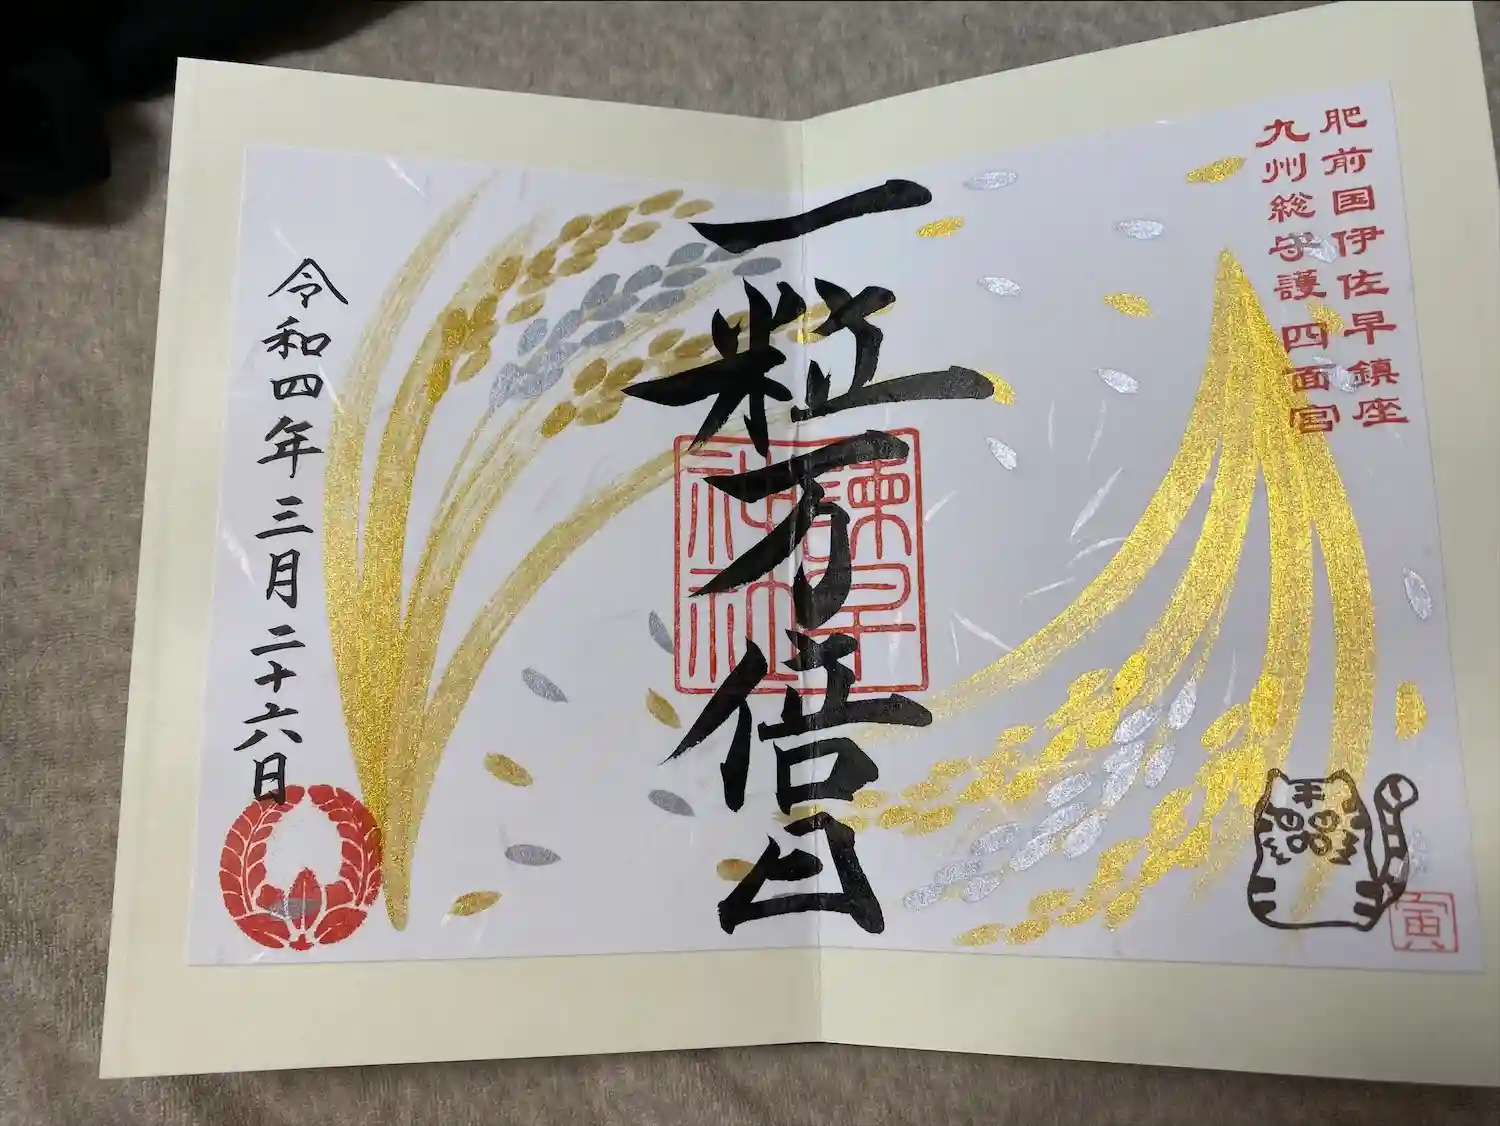 肥前国伊佐早鎮座
九州総守護四面宮
一粒万倍日
諫早
神社
令和四年三月二十六日
寅